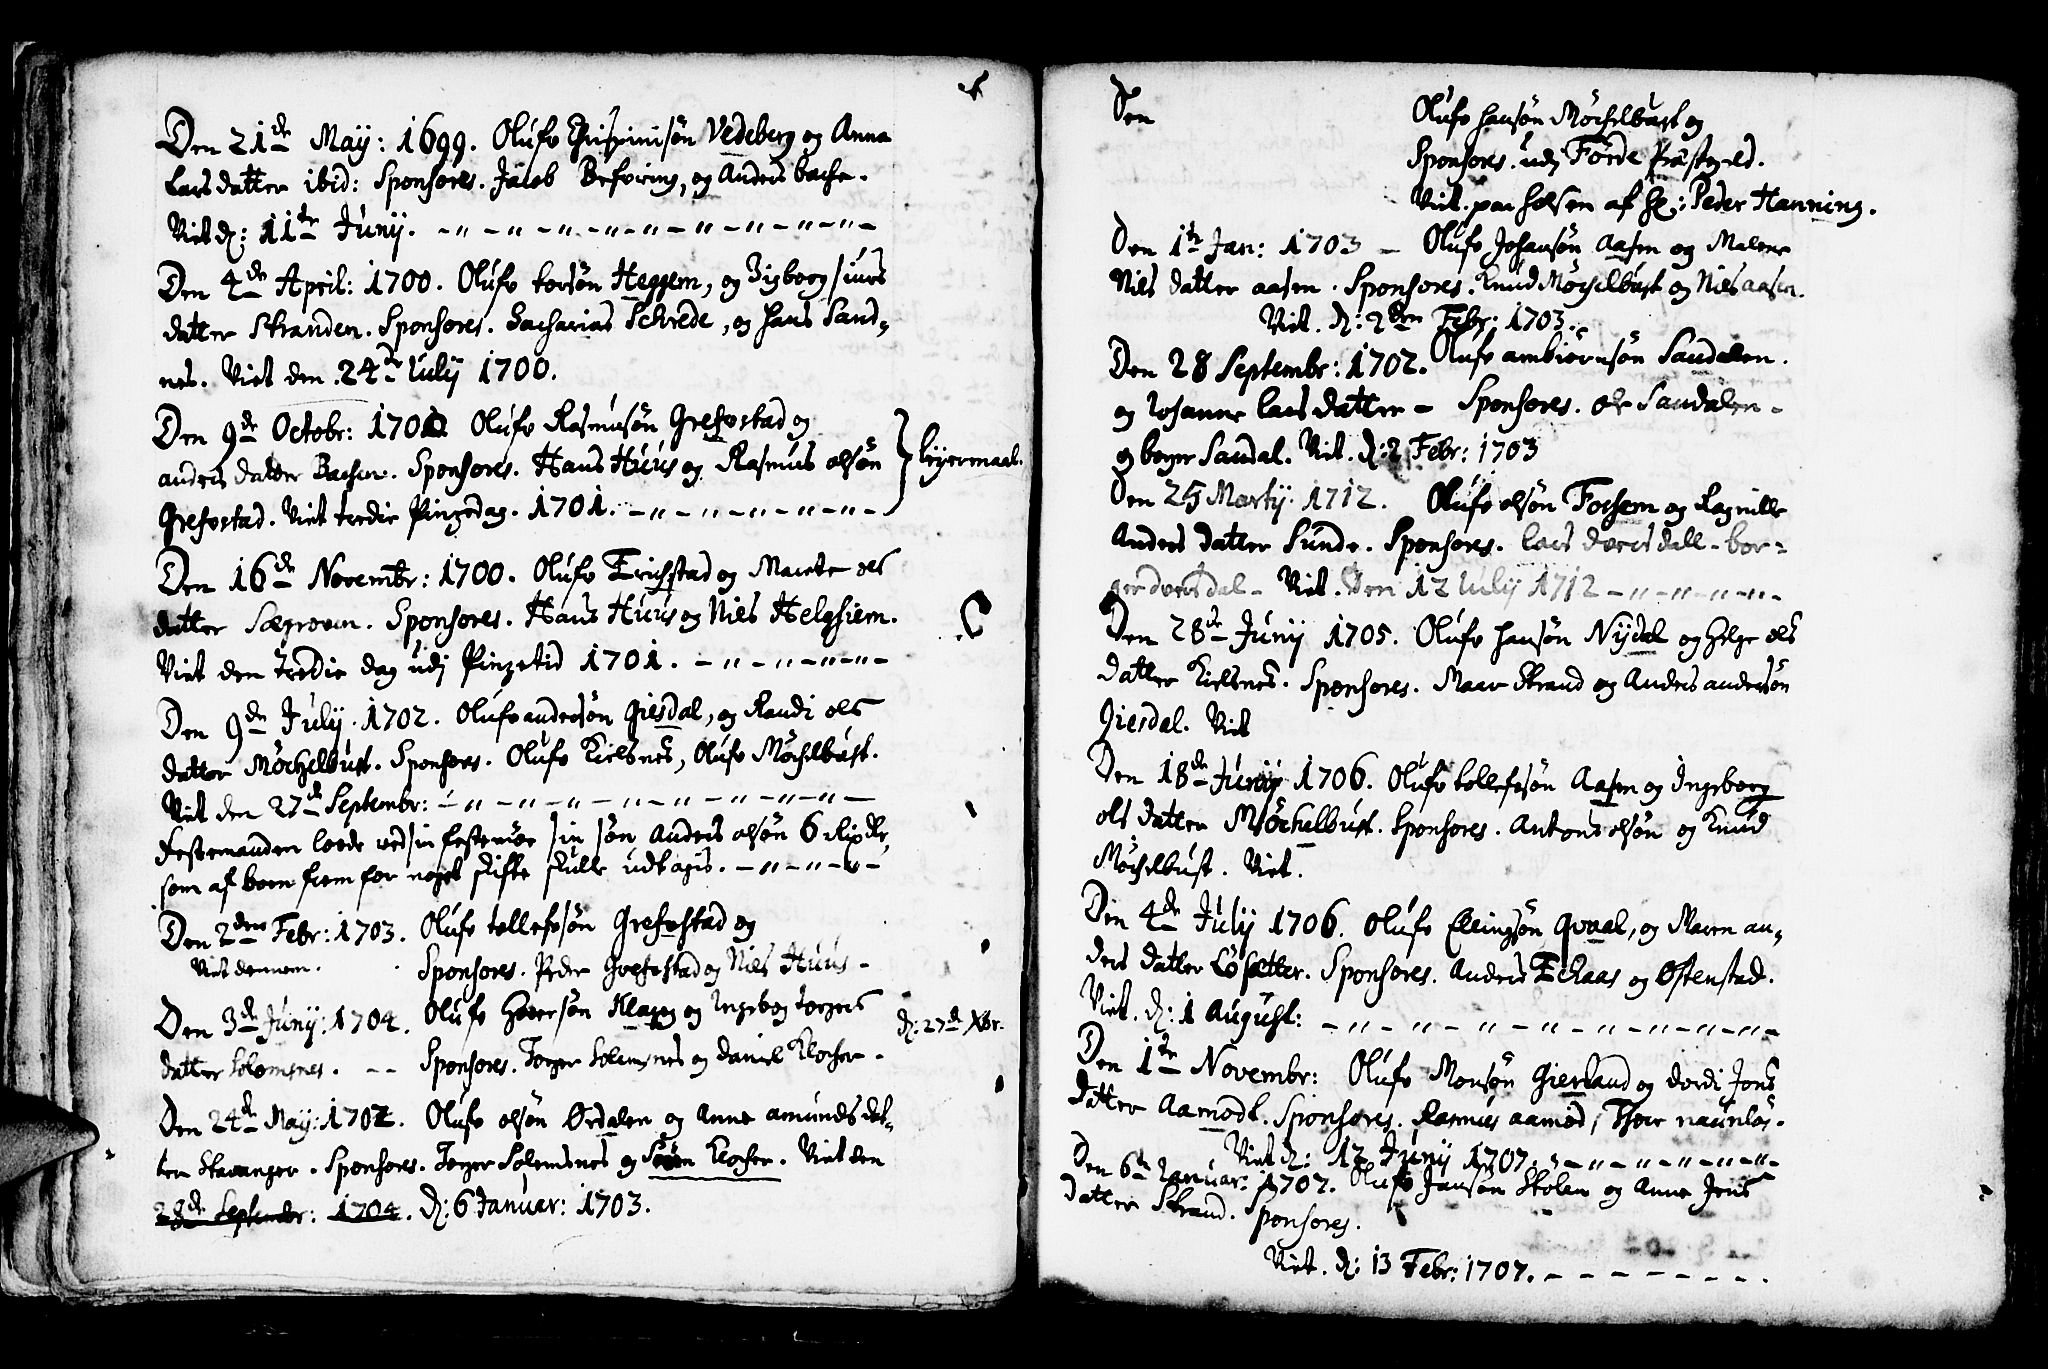 Den 21de Maij: 1699. Olufv Crispinisøn Vedeberg og Anna
Lars datter ibid: Sponsores. Jacob Befvring, og Anders bache.
Viet d: 11te Junij. - " - " - " - " - " - " - " - " -
Den 4de April: 1700. Olufv torsøn Heggem, og Zigborg siurs
datter Stranden. Sponsores. Zacharias Schrede, og Hans Sand=
nes. Viet den 24de Iulij 1700.
Den 9de Octobr: 1700 Olufv Rasmusøn Grefvstad og
anders datter Bachen. Sponsores. Hans Huus og Rasmus olsøn
Grefvstad. Viet tredie Pinzedag. 1701. - " - " - " - " - " -
leyermaal.
Den 16de Novembr: 1700. Olufv Erichstad og Marete ols
datter Sægroven. Sponsores. Hans Huus og Niels Helghiem.
Viet den tredie dag udj Pinzetid 1701. - " - " - " - " -
Den 9de Julij. 1702. Olufv andersøn Giesdal, og Randi ols
datter Möchelbust. Sponsores. Olufv Kielsnes, Olufv Möchelbust.
Viet den 27de Septembr: - " - " - " - " - " - " - " - " -
Festemanden lovede ved sin festemøe sin søn Anders olsøn 6 Rixdlr,
som af boen frem for noget skifte skulle udtagis. - " - " - " -
Den 2den Febr: 1703. Olufv tollefsøn Grefvstad og
Viet dennem. Sponsores. Peder Grefvstad og Niels Huus -
Den 3de Junij: 1704. Olufv Goversøn Klagg og Ingebog torgers
d: 27de Xbr.
datter Solemsnes. - - Sponsores. Torger Solemsnes og daniel Klocher -
Den 24de Maij: 1702. Olufv olsøn Ørdalen og Anne amunds dat=
ter Stavanger. Sponsores. Torger Solemsnes og Søren Klocher. Viet den
28de Septembr: 1704. d: 6 Januar: 1703.
Den Olufv Hansøn Möchelbust og
Sponsores. udj Förde Præstegield.
Viet. paa holsen af Hr: Peder Hanning.
Den 1te Jan: 1703 - Olufv Johansøn Aasen og Malene
Niels datter aasen. Sponsores. Knud Möchelbust og Niels aasen.
Viet. d: 2den Febr: 1703.
Den 28 Septembr: 1702. Olufv ambiørnsøn Sandalen.
og Iohanne Lars datter - Sponsores. ole Sandalen -
og boger Sandal. Viet. d: 2 Febr: 1703
Den 25 Martij. 1712. Olufv olsøn Fochsem og Ragnille
Anders datter Sunde. Sponsores. Lars dversdall - bor=
ger dversdal - Viet. den 12 Iulij 1712 - " - " - " - " -
Den 28de Junij 1705. Olufv Hansøn Nijdal og Helge ols
datter Kielsnes. Sponsores. Maar Strand og Anders andersøn
Giesdal. Viet
Den 18de Junij 1706. Olufv tollefsøn Aasen og Ingeborg
ols datter Möchelbust. Sponsores. Antonis olsøn og Knud
Möchelbust. Viet.
Den 4de Julij 1706. Olufv Ellingsøn Qvaal, og Maren an=
ders datter Lösætter. Sponsores. Anders Eckaas og Østenstad.
Viet. d: 1 August: - " - " - " - " - " - " - " - " - " -
Den 1te Novembr: Olufv Monsøn Gierland og dordi Jons
datter Aamodt. Sponsores. Rasmus aamod, Tfver naunløs.
Viet d: 12 Junij 1707. " - " - " - " - " - " -
Den 6te Januar: 1707. Olufv Jansøn Stolen og Anne Jens
datter Strand. Sponsores.
Viet. d: 13 Febr: 1707. - - - - - - - -